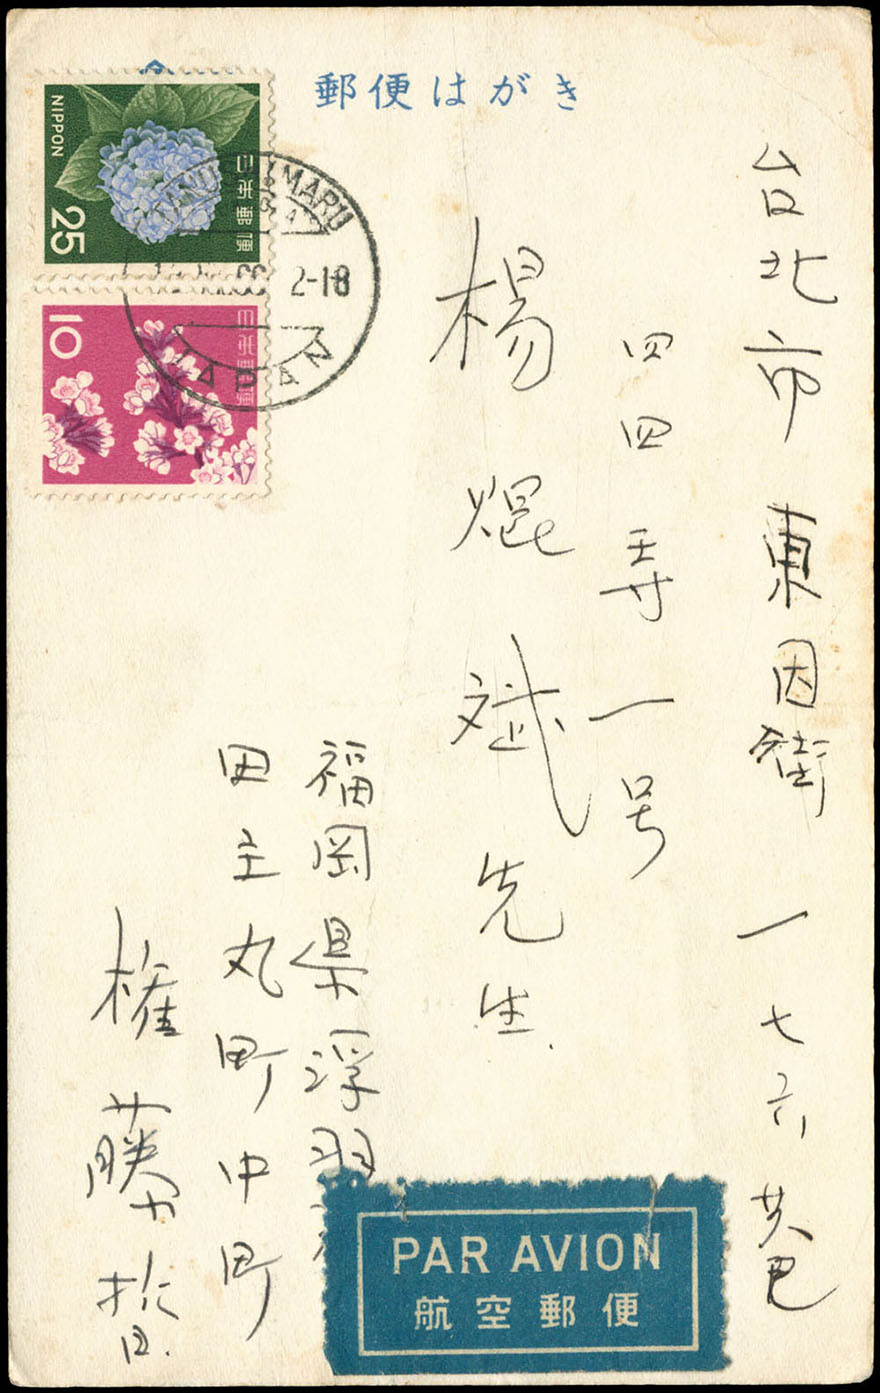 郵便はがき
台北市東因街一七六巷
四四弄一号
楊焜斌先生
福岡県浮羽
田主丸町中町
権藤
NIPPON
25
日本郵便
10
日本郵便
TANUSHIMARU
2-18
JAPAN
PAR AVION
航空郵便